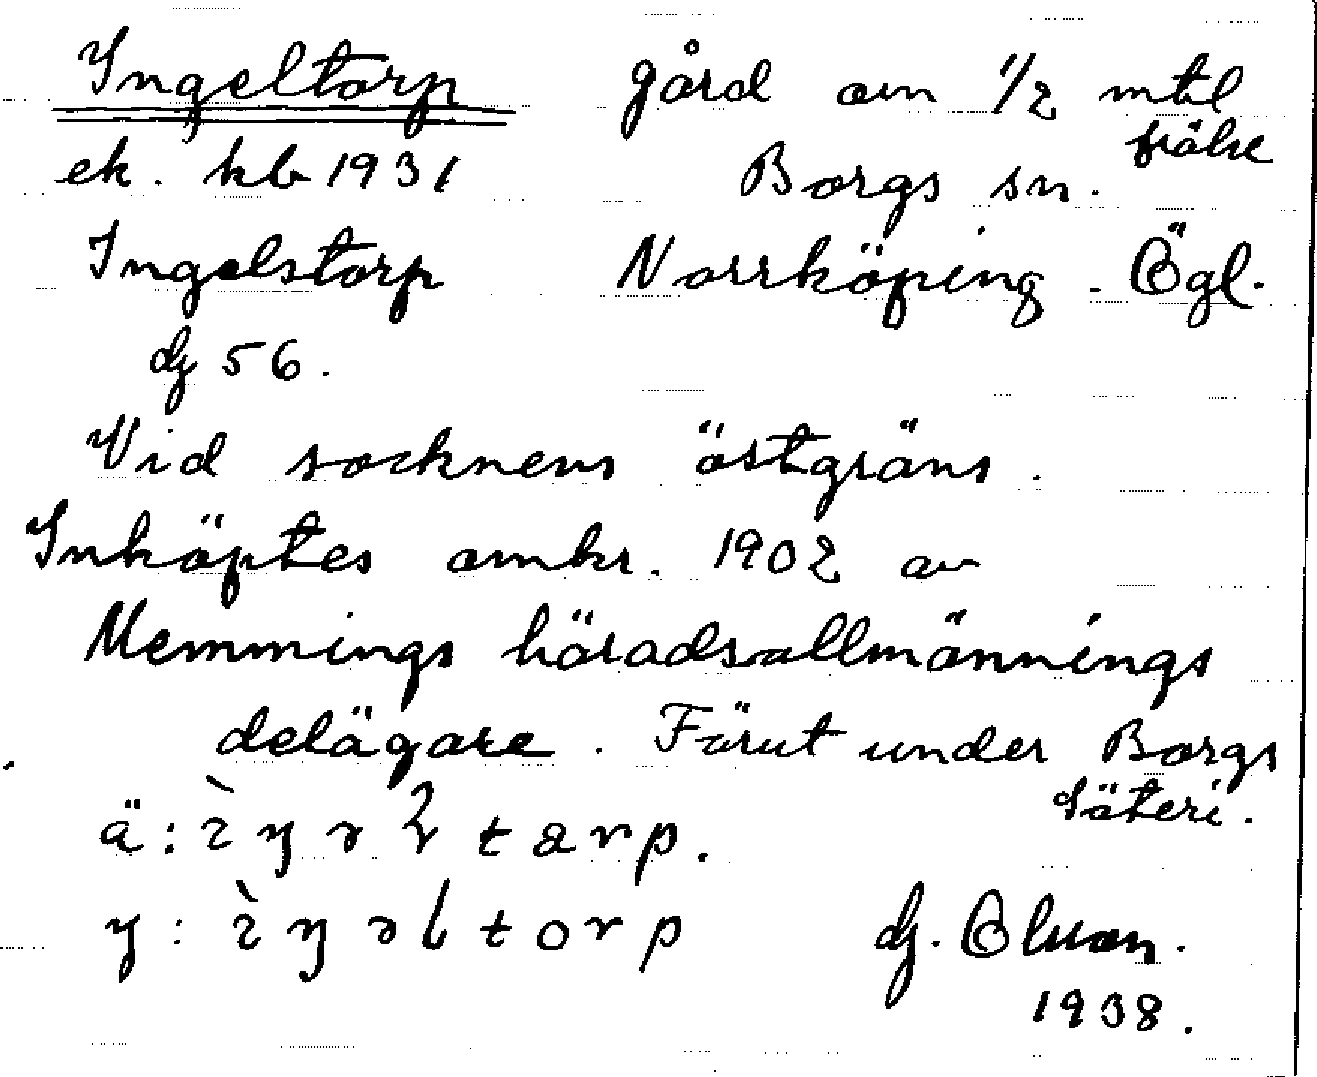 Ingeltorp gård om 1/2 mtl
frälse
ek. kb 1931 Borgs sn.
Ingelstorp Norrköping Ögl.
dj 56.
Vid socknens östgräns.
Inköptes omkr. 1902 av
Memmings häradsallmännings
delägare. Förut under Borgs
Säteri.
ä:
y:
dj.
1938.